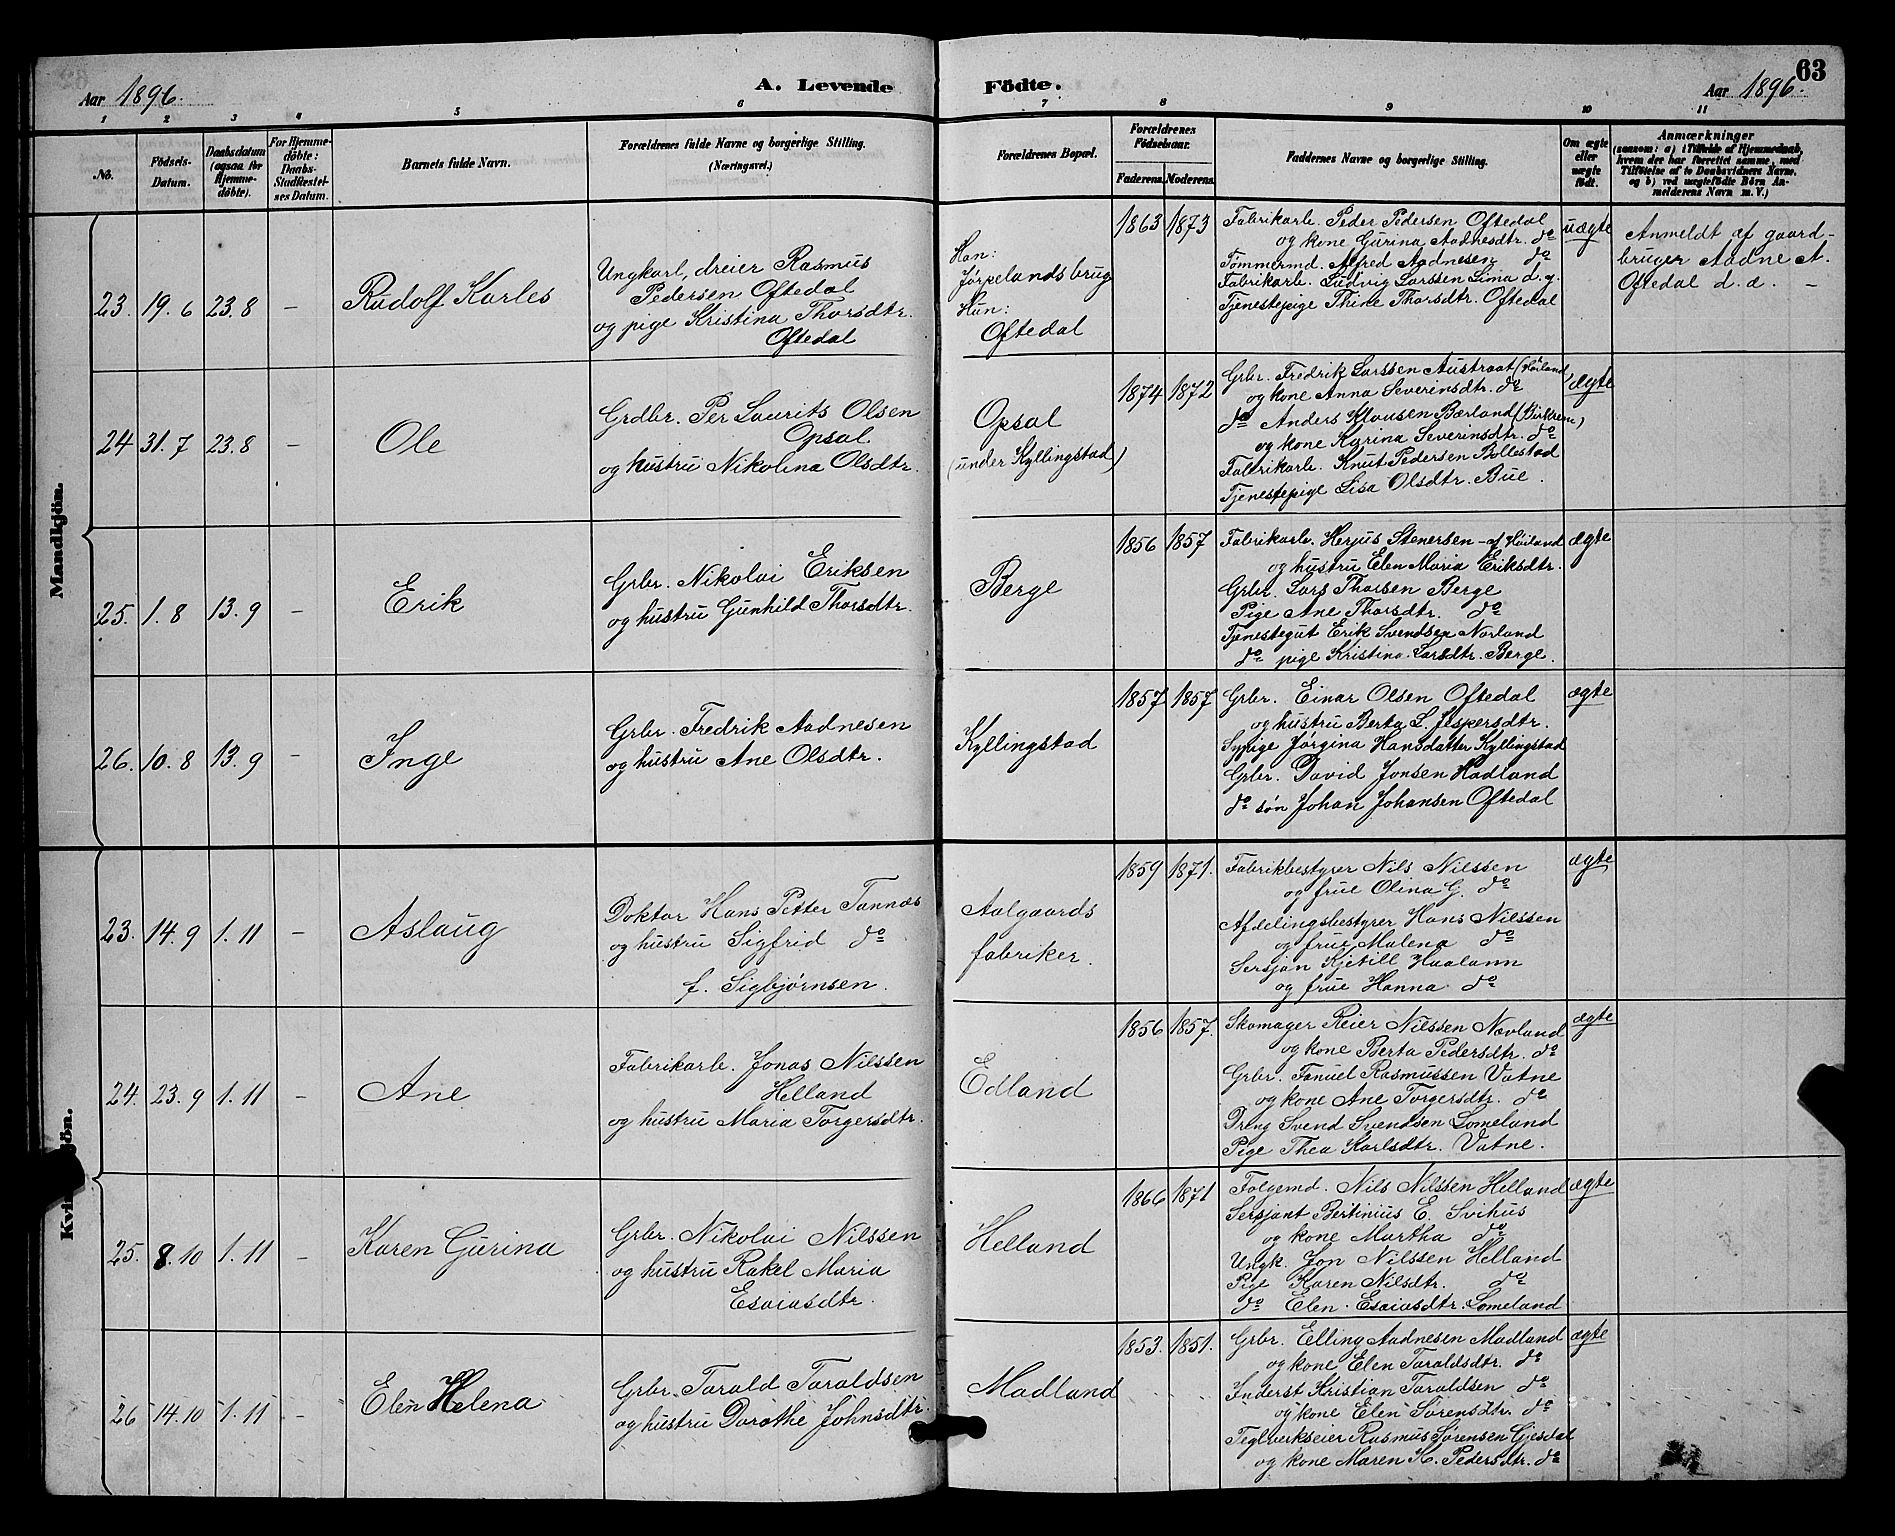 Aar 1896.
A. Levende
Födte.
Aar 1896.
63
1 2 3 4 5 6 7 8 9 10 11
No.
Födsels-
Datum.
Daabsdatum
(ogsaa for
Hjemme-
döbte).
For Hjemme-
döbte:
Daabs-
Stadfæstel-
ses Datum.
Barnets fulde Navn.
Forældrenes fulde Navne og borgerlige Stilling.
(Næringsvei.)
Forældrenes Bopæl.
Forældrenes
Födselsaar.
Faderens. Moderens.
Faddernes Navne og borgerlige Stilling.
Om ægte
eller
uægte
födt.
Anmærkninger
(saasom: a) i Tilfælde af Hjemmedaab,
hvem der har forrettet samme, med
Tilföielse af to Daabsvidners Navne,
og b) ved uægtefödte Börn An-
melderens Navn m. V.)
Mandkjön.
23. 19.6 23.8 –
Rudolf Karles
Ungkarl, dreier Rasmus
Pedersen Oftedal
og pige Kristina Thorsdtr.
Oftedal
Han:
Jørpelandsbrug
Hun:
Oftedal
1863 1873
Fabrikarb. Peder Pedersen Oftedal
og kone Gurina Aadnesdtr. do
Tømmermd. Alfred Aadnesen do
Fabrikarb. Ludvig Larssen Lima d.y.
Tjenestepige Thine Thorsdtr. Oftedal
uægte
Anmeldt af gaard-
bruger Aadne A.
Oftedal d.a. –
24 31.7 23.8 –
Ole
Grdbr. Per Laurits Olsen
Opsal
og hustru Nikolina Olsdtr.
Opsal
(under Kyllingstad)
1874 1872
Grbr. Fredrik Larssen Austraat (Höiland)
og kone Anna Severinsdtr. do
do Anders Klausen Bærland (Birkrem)
og kone Karina Severinsdtr. do
Fabrikarb. Knut Pedersen Bollestad
Tjenestepige Lisa Olsdtr. Bue.
ægte
25. 1.8 13.9 –
Erik
Grbr. Nikolai Eriksen
og hustru Gunhild Thorsdtr.
Berge
1856 1857
Fabrikarb. Herjus Stenersen – af Höiland
og hustru Elen Maria Eriksdtr.
Grbr. Lars Thorsen Berge
Pige Ane Thorsdtr. do
Tjenestegut Erik Svendsen Norland
do pige Kristina Larsdtr. Berge.
ægte
26. 10.8 13.9 –
Inge
Grbr. Fredrik Aadnesen
og hustru Ane Olsdtr.
Kyllingstad
1857 1857
Grbr. Einar Olsen Oftedal
og hustru Berta L. Jespersdtr.
Sypige Jørgina Hansdatter Kyllingstad
Grbr. David Jonsen Hadland
do søn Johan Johansen Oftedal
ægte
23. 14.9 1.11 –
Aslaug
Doktor Hans Petter Tannæs
og hustru Sigfrid do
f. Sigbjørnsen.
Aalgaards
fabriker.
1859 1871.
Fabrikbestyrer Nils Nilssen
og frue Olina G. do
Afdelingsbestyrer Hans Nilssen
og frue Malena do
Sersjan Kjetill Haalann
og frue Hanna do
ægte
24. 23.9 1.11 –
Ane
Fabrikarb. Jonas Nilssen
Helland
og hustru Maria Torgersdtr.
Edland
1856 1857.
Skomager Reier Nilssen Nævland
og kone Berta Pedersdtr. do
Grbr. Tanuel Rasmussen Vatne
og kone Ane Torgersdtr. do
Dreng Svend Svendsen Lomeland
Pige Thea Karlsdtr. Vatne.
ægte
25. 8.10 1.11 –
Karen Gurina
Grbr. Nikolai Nilssen
og hustru Rakel Maria
Esaiasdtr.
Helland
1866 1871
Folgemd. Nils Nilssen Helland
Sersjant Bertinius E. Svihus
og kone Martha do
Ungk. Jon Nilssen Helland
Pige Karen Nilsdtr. do
do Elen Esaiasdtr. Lomeland
ægte
26 14.10 1.11 –
Elen Helena
Grbr. Tarald Taraldsen
og hustru Dorothe Johnsdtr.
Madland
1853. 1851.
Grbr. Elling Aadnesen Madland
og kone Elen Taraldsdtr. do
Inderst Kristian Taraldsen do
og kone Elen Sørensdtr. do
Teglverkseier Rasmus Sørensen Gjesdal
og kone Maren K. Pedersdtr. do
ægte